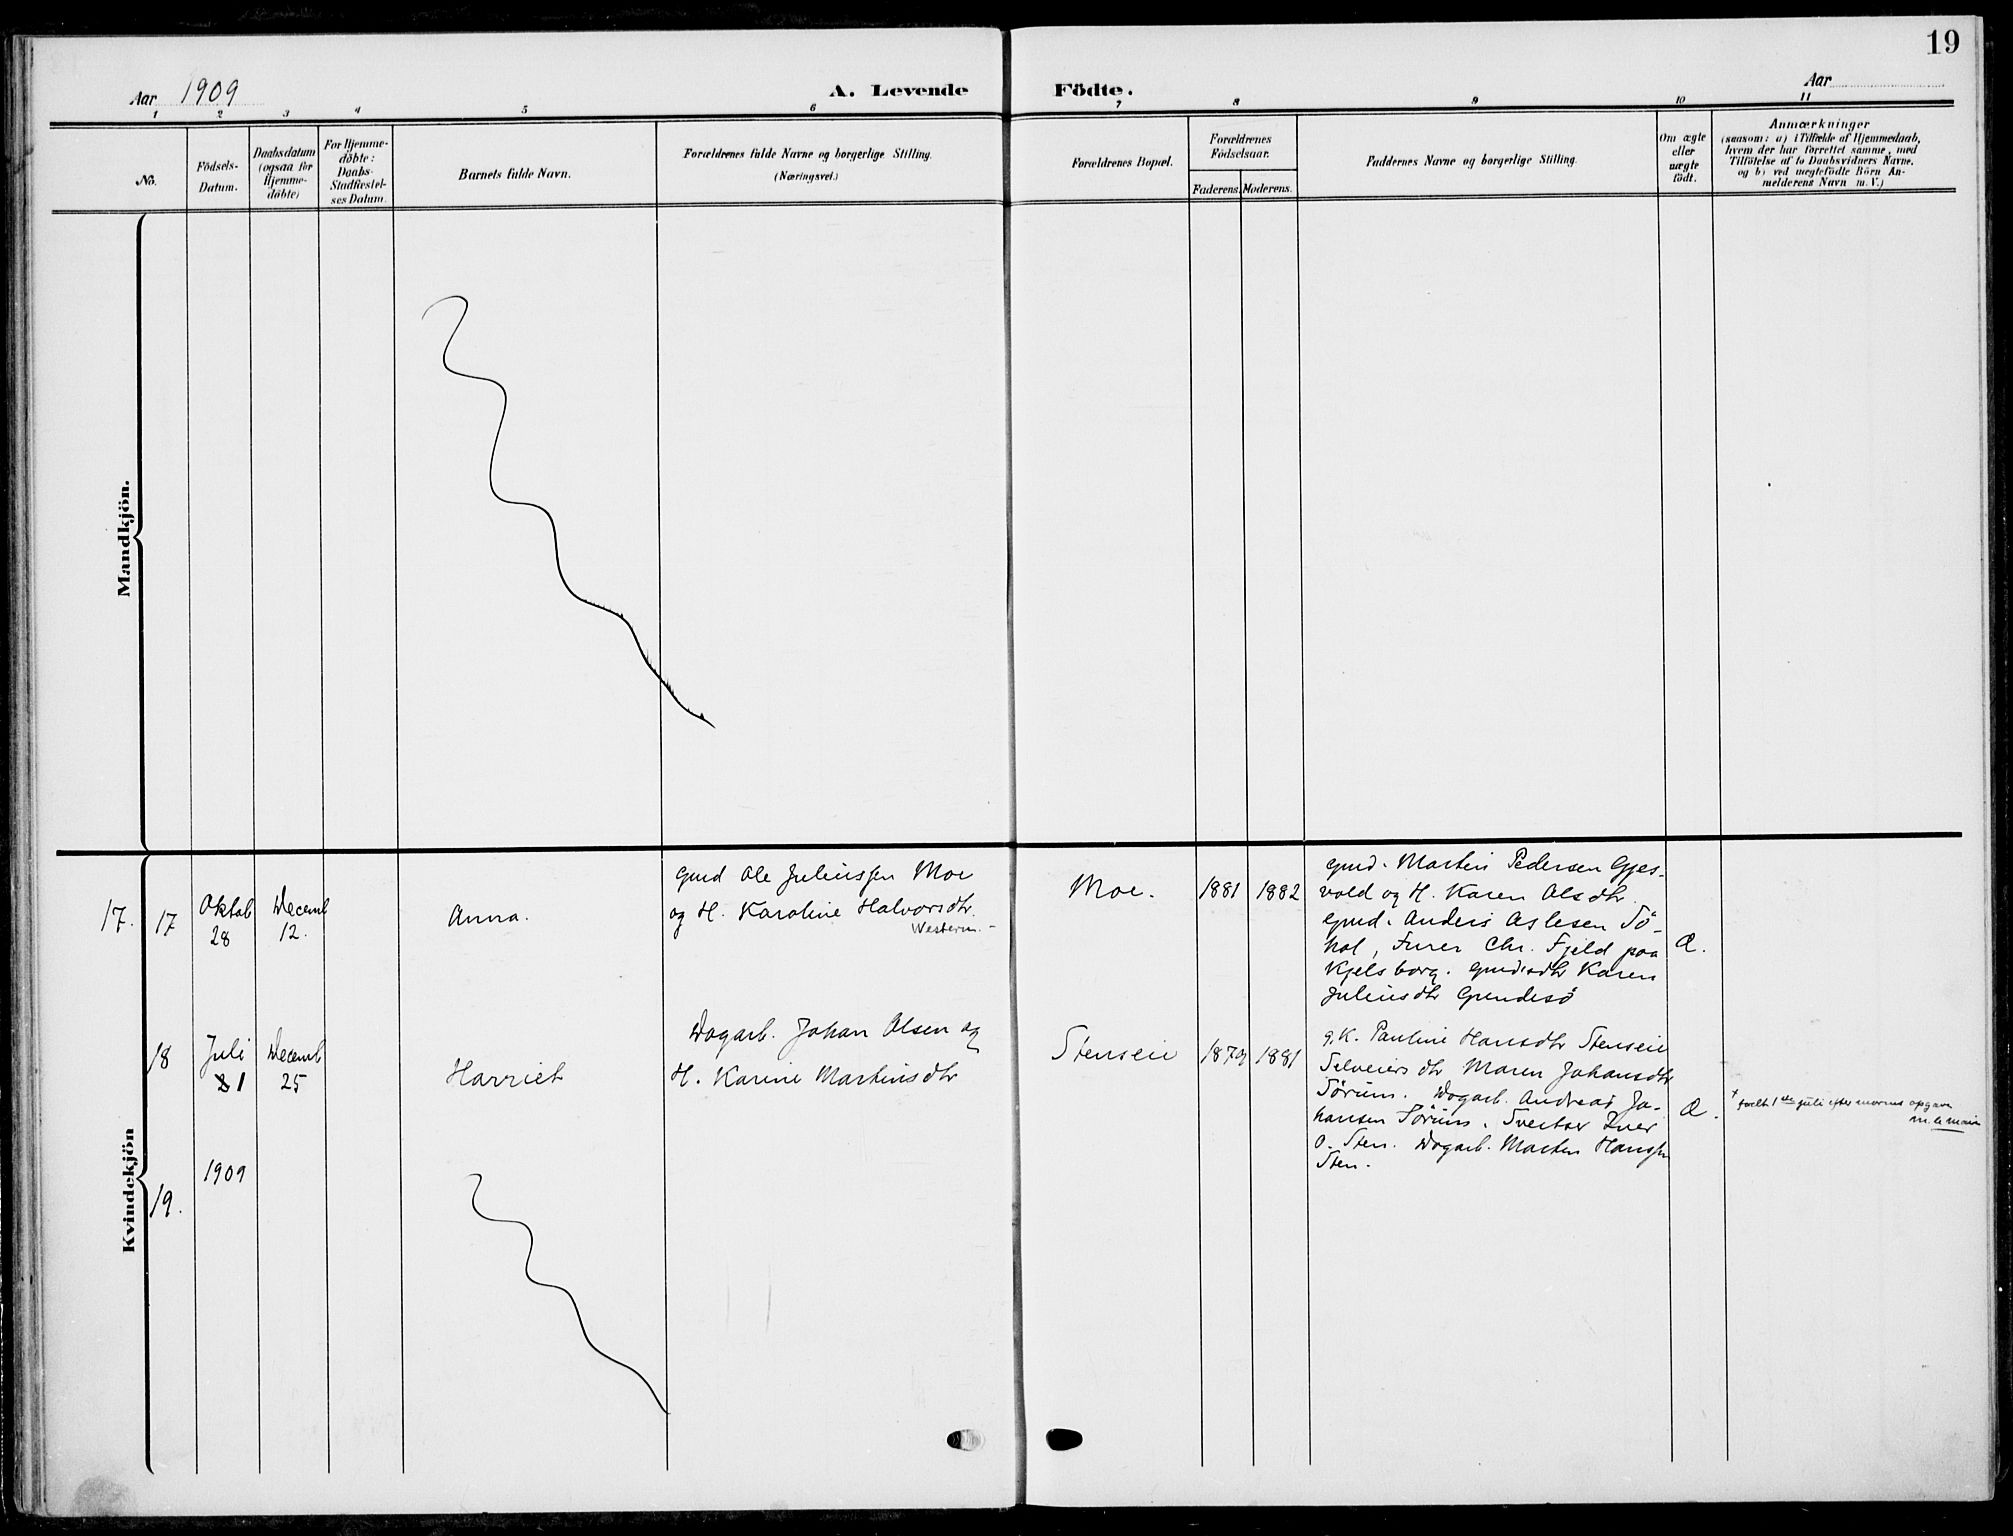 19
Aar 1909
A. Levende Födte.
Aar
1 2 3 4 5 6 7 8 9 10 11
No.
Födsels-
Datum.
Daabsdatum
(ogsaa for
Hjemme-
döbte)
For Hjemme-
döbte:
Daabs-
Stadfæstel-
ses Datum.
Barnets fulde Navn.
Forældrenes fulde Navne og borgerlige Stilling.
(Næringsvei.)
Forældrenes Bopæl.
Forældrenes
Födselsaar.
Faderens. Moderens.
Faddernes Navne og borgerlige Stilling.
Om ægte
eller
uægte
födt.
Anmærkninger
(saasom: a) i Tilfælde af Hjemmedaab,
hvem der har forrettet samme, med
Tilföielse af to Daabsvidners Navne,
og b) ved uægtefödte Börn An-
melderens Navn m. V.)
Mandkjön.
Kvindekjön
17. 17
Oktob
28
Decemb
12.
Anna.
Gmd Ole Juliussen Moe
og H. Karoline Halvorsdtr.
Western.
Moe.
1881
1882
Gmd. Martin Pedersen Gjes-
vold og H. Karen Olsdtr.
Gmd. Anders Aslesen Sö-
hol, Furer Chr. Fjeld paa
Kjelsborg. Gmdsdtr Karen
Juliusdtr Grundesö
Æ.
18
Juli
1
Decemb
25
Harriet
Dagarb. Johan Olsen og
H. Karine Martinsdtr
Stenseie
1879
1881
g. K. Pauline Hansdtr Stenseie
Selveiersdtr Maren Johansdtr
Sörum. Dagarb. Andreas Jo-
hansen Sörum. Sveitser Iver
O. Sten. Dagarb. Marten Hanssen
Sten.
Æ.
+ födt 1ste juli efter morens opgave
19.
1909